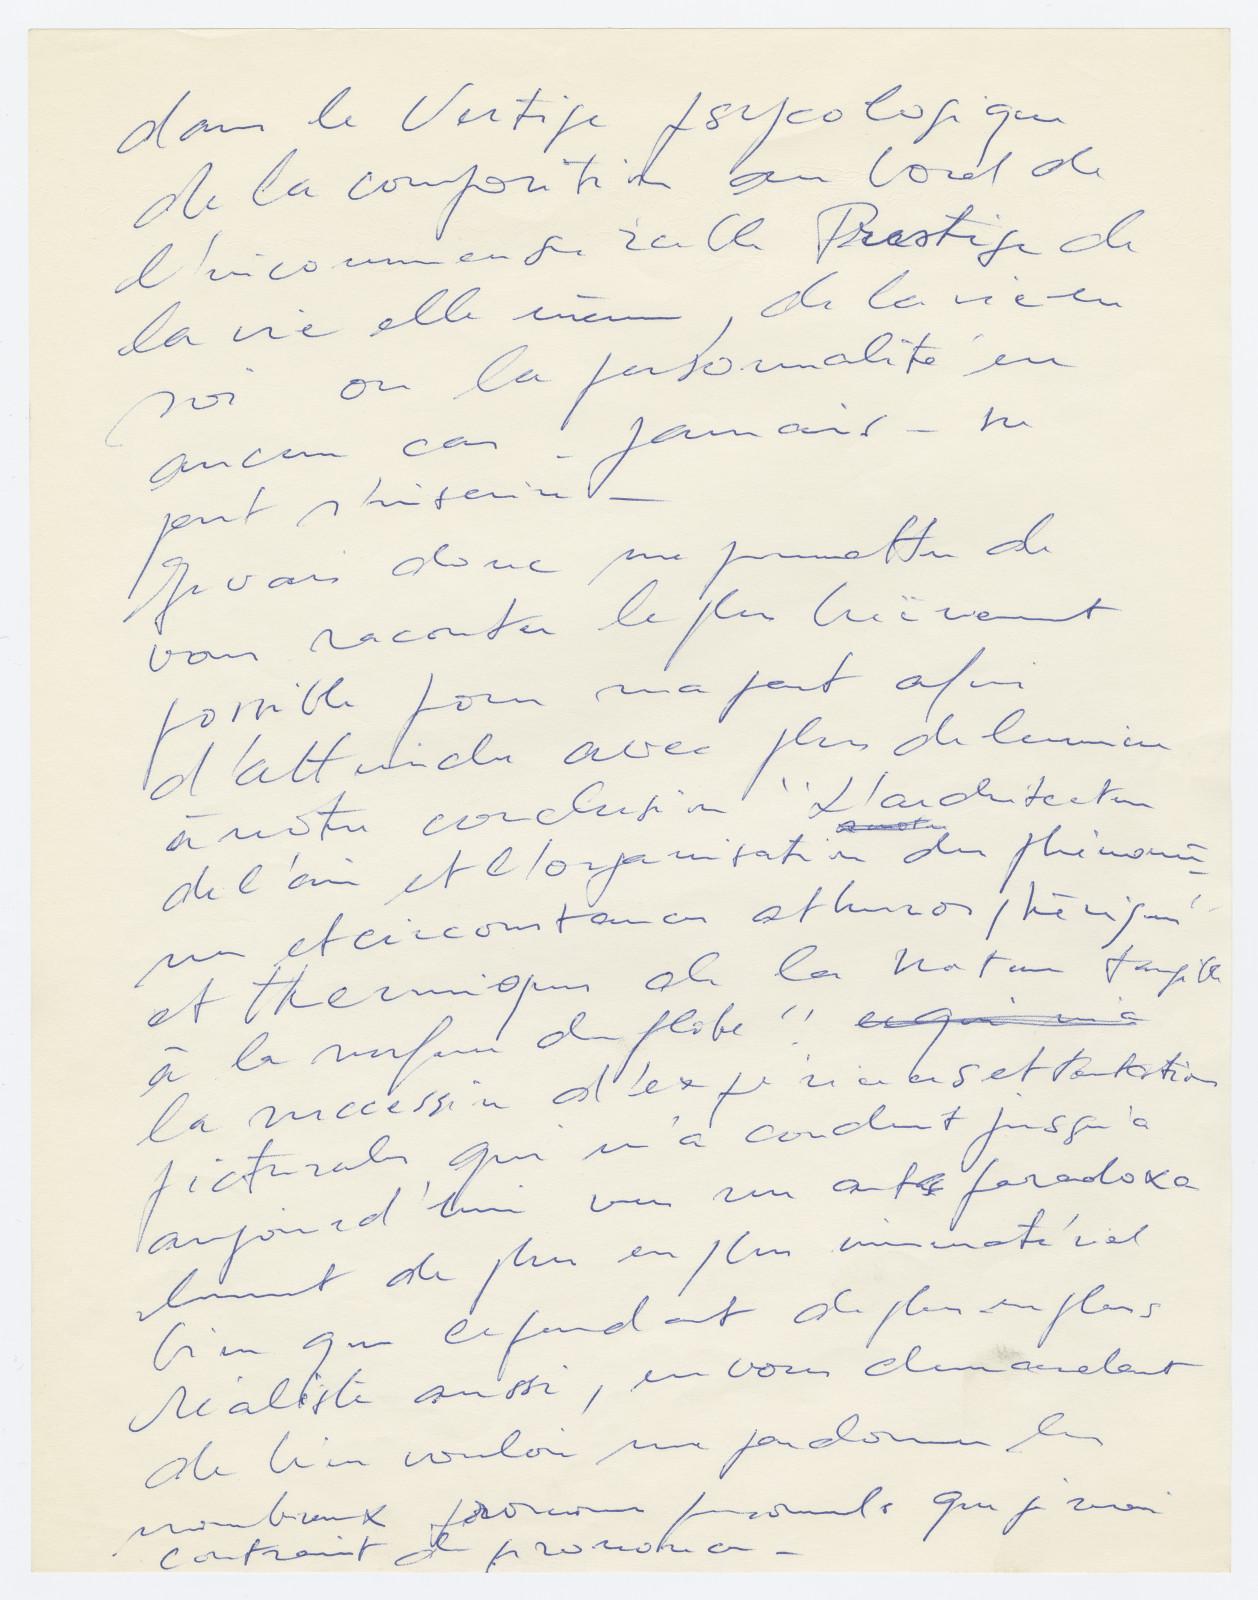 dans le Vertige psycologique
de la composition au bord de
l'incommensurable Prestige de
la vie elle même, de la vie en
soi ou la personnalité en
aucun cas - jamais - ne
peut s'insérire -
Je vais donc me permettre de
vous raconter le plus brièvement
possible pour ma part afin
d'atteindre avec plus de lumière
à notre conclusion "L'architecture
de l'air et l'organisation des phénomè-
nes et circonstances athmosphériques
et thermiques de la Nature tangible
à la surface du globe" ce qui m'a
la succession d'expériences et tentatives
picturales qui m'a conduit jusqu'à
aujourd'hui vers un art paradoxa
lement de plus en plus immatériel
bien que cependant de plus en plus
réaliste aussi, en vous demandant
de bien vouloir me pardonner les
nombreux pronoms personnels que je serai
contraint de prononcer -